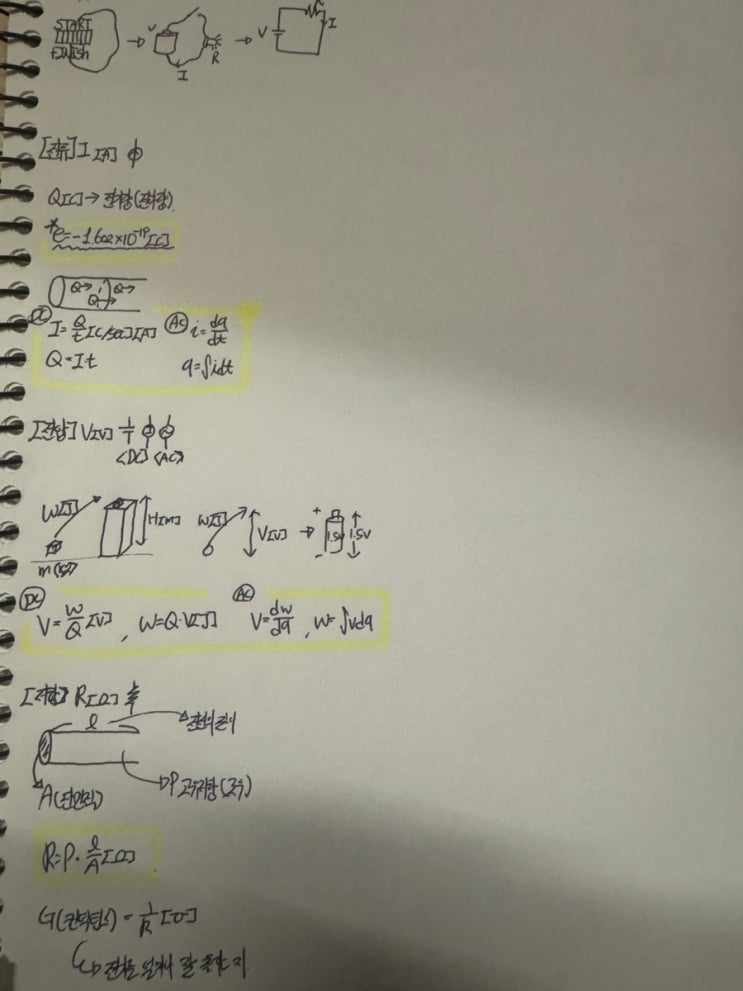 START
FINISH
V I R
V I
[전류] I [A]
Q[C] → 전하량(전하량).
*e=-1.602×10⁻¹⁹[C]
Q→ i Q→
Q→
DC I=Q/t [C/sec][A] AC i=dq/dt
Q=It q=∫idt
[전압] V[V]
<DC> <AC>
W[J] H[m] W[J] V[V] → + - 1.5V 1.5V
m(kg)
DC AC
V=W/Q [V], W=Q·V[J] V=dw/dq, w=∫vdq
[저항] R[Ω]
l → 전선의 길이
A(단면적) → ρ 고유저항(상수)
R=ρ·l/A[Ω]
G(컨덕턴스)=1/R[℧]
→ 전류를 얼마나 잘 흘릴지